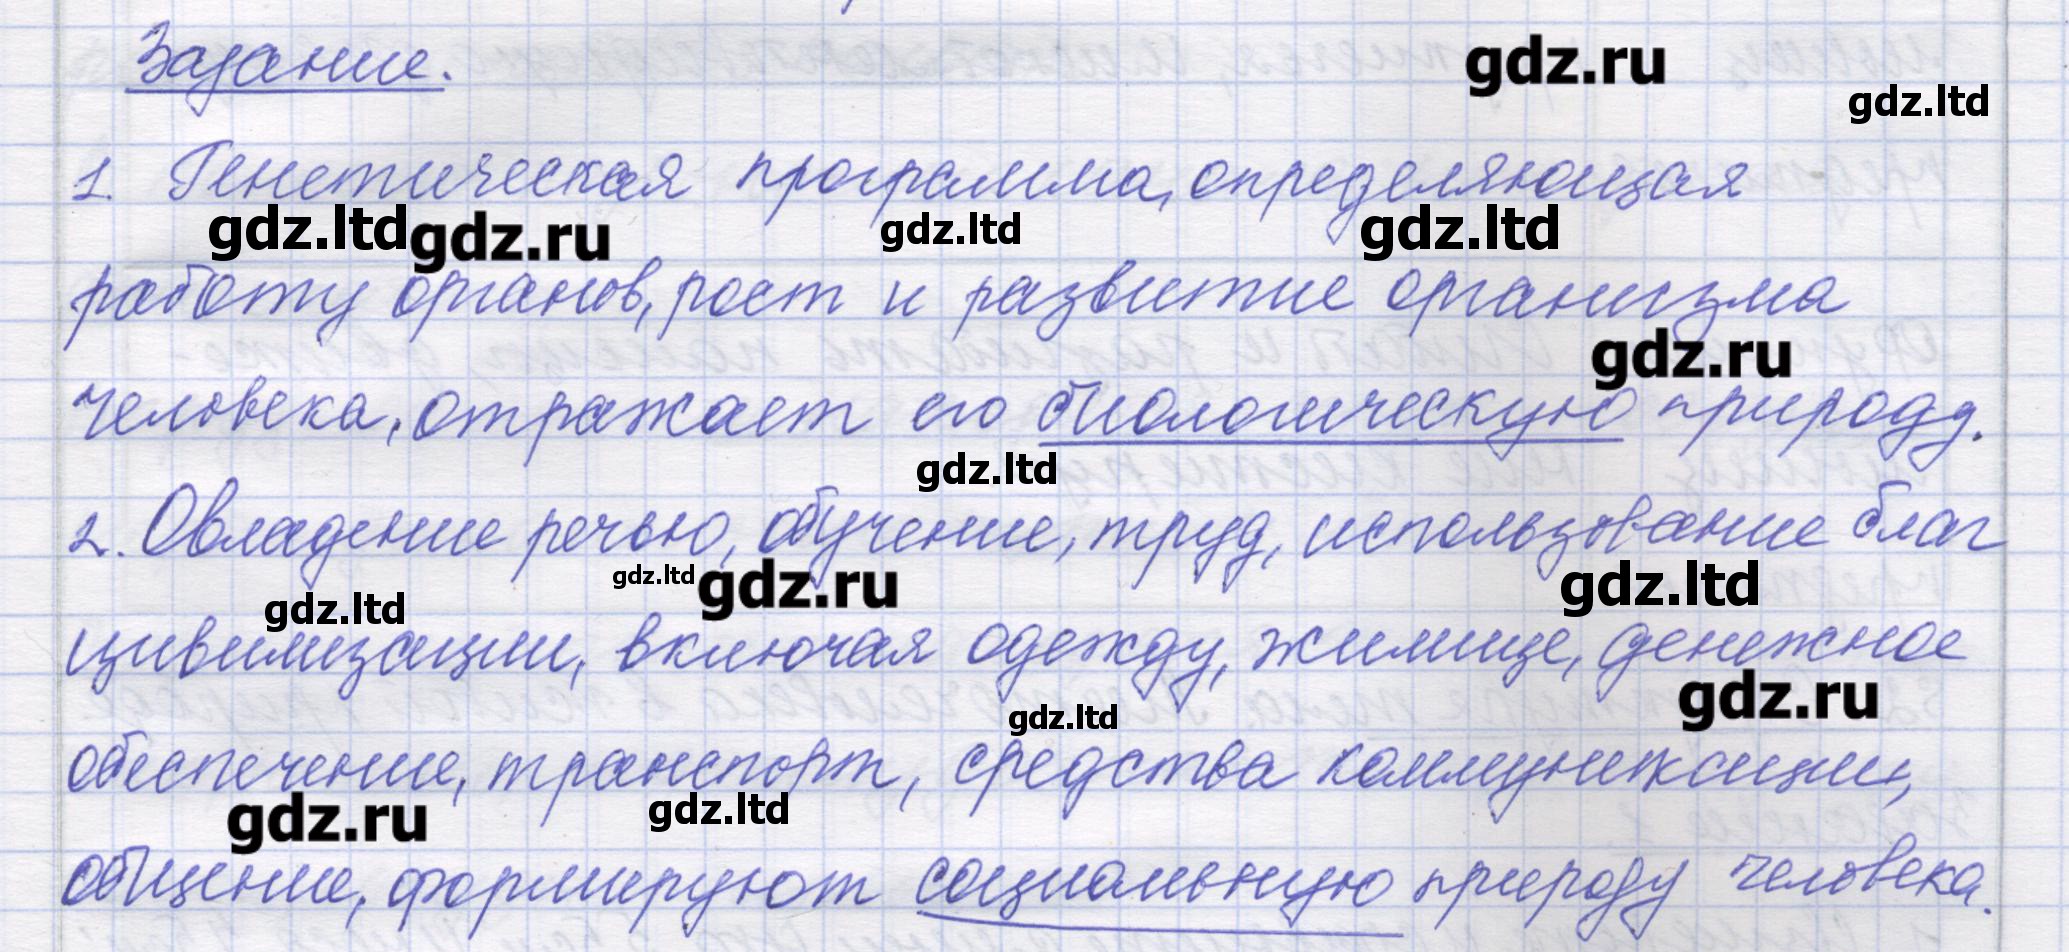 Задание.
gdz.ru
gdz.ltd
1. Генетическая программа, определяющая
gdz.ltd gdz.ru gdz.ltd gdz.ltd
работу органов, рост и развитие организма
gdz.ru
человека, отражает его биологическую природу.
gdz.ltd
2. Овладение речью, обучение, труд, использование благ
gdz.ltd gdz.ltd gdz.ru gdz.ltd
цивилизации, включая одежду, жилище, денежное
gdz.ltd gdz.ru
обеспечение, транспорт, средства коммуникации,
gdz.ru gdz.ltd
общение, формируют социальную природу человека.